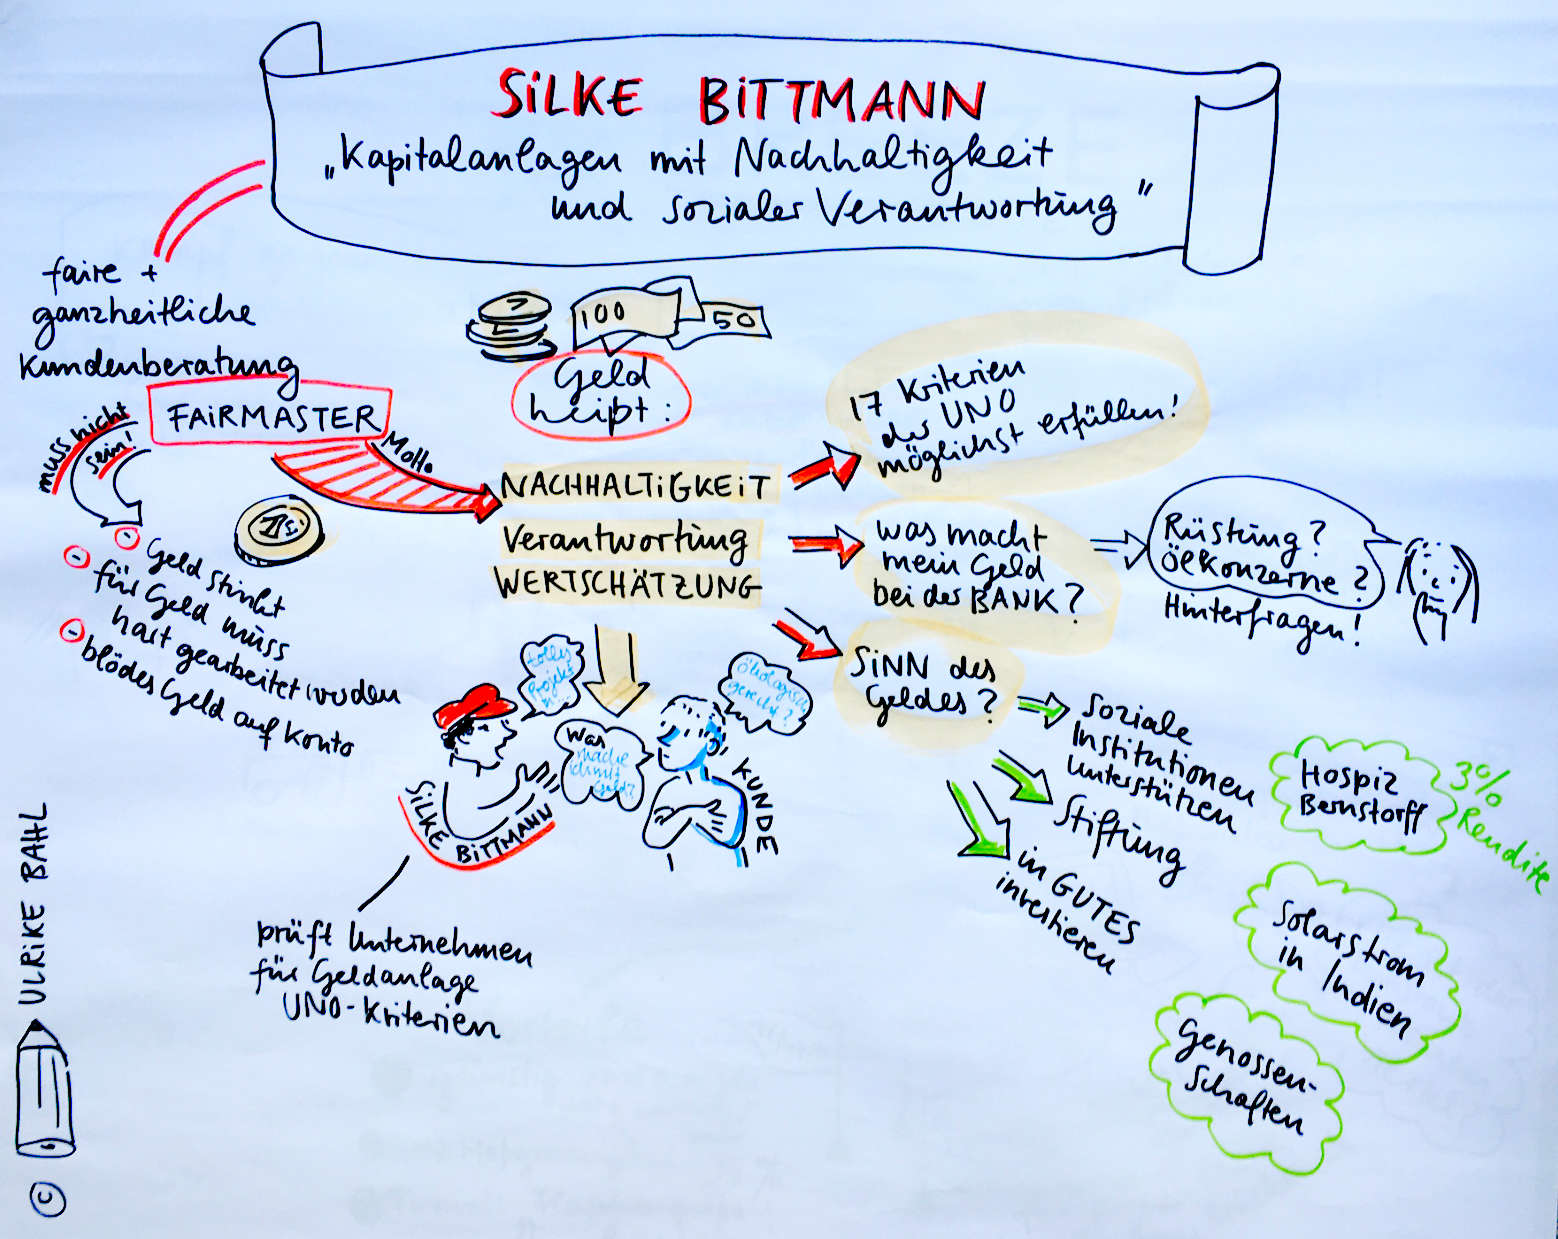 SILKE BITTMANN
„Kapitalanlagen mit Nachhaltigkeit
und sozialer Verantwortung"
faire +
ganzheitliche
Kundenberatung
FAIRMASTER
muss nicht
sein!
Motto
100
50
Geld
heißt:
NACHHALTIGKEIT
Verantwortung
WERTSCHÄTZUNG
17 Kriterien
der UNO
möglichst erfüllen!
was macht
mein Geld
bei der BANK?
Rüstung?
Ölkonzerne?
Hinterfragen!
SINN des
Geldes?
Soziale
Institutionen
unterstützen
Stiftung
in GUTES
investieren
Hospiz
Bernstorff
3%
Rendite
Solarstrom
in Indien
Genossen-
schaften
- Geld stinkt
- für Geld muss
hart gearbeitet werden
- blödes Geld auf Konto
tolles
Projekt
Was
mache
ich mit
Geld?
ökologisch
gerecht?
SILKE BITTMANN
KUNDE
prüft Unternehmen
für Geldanlage
UNO-Kriterien
© ULRIKE BAHL